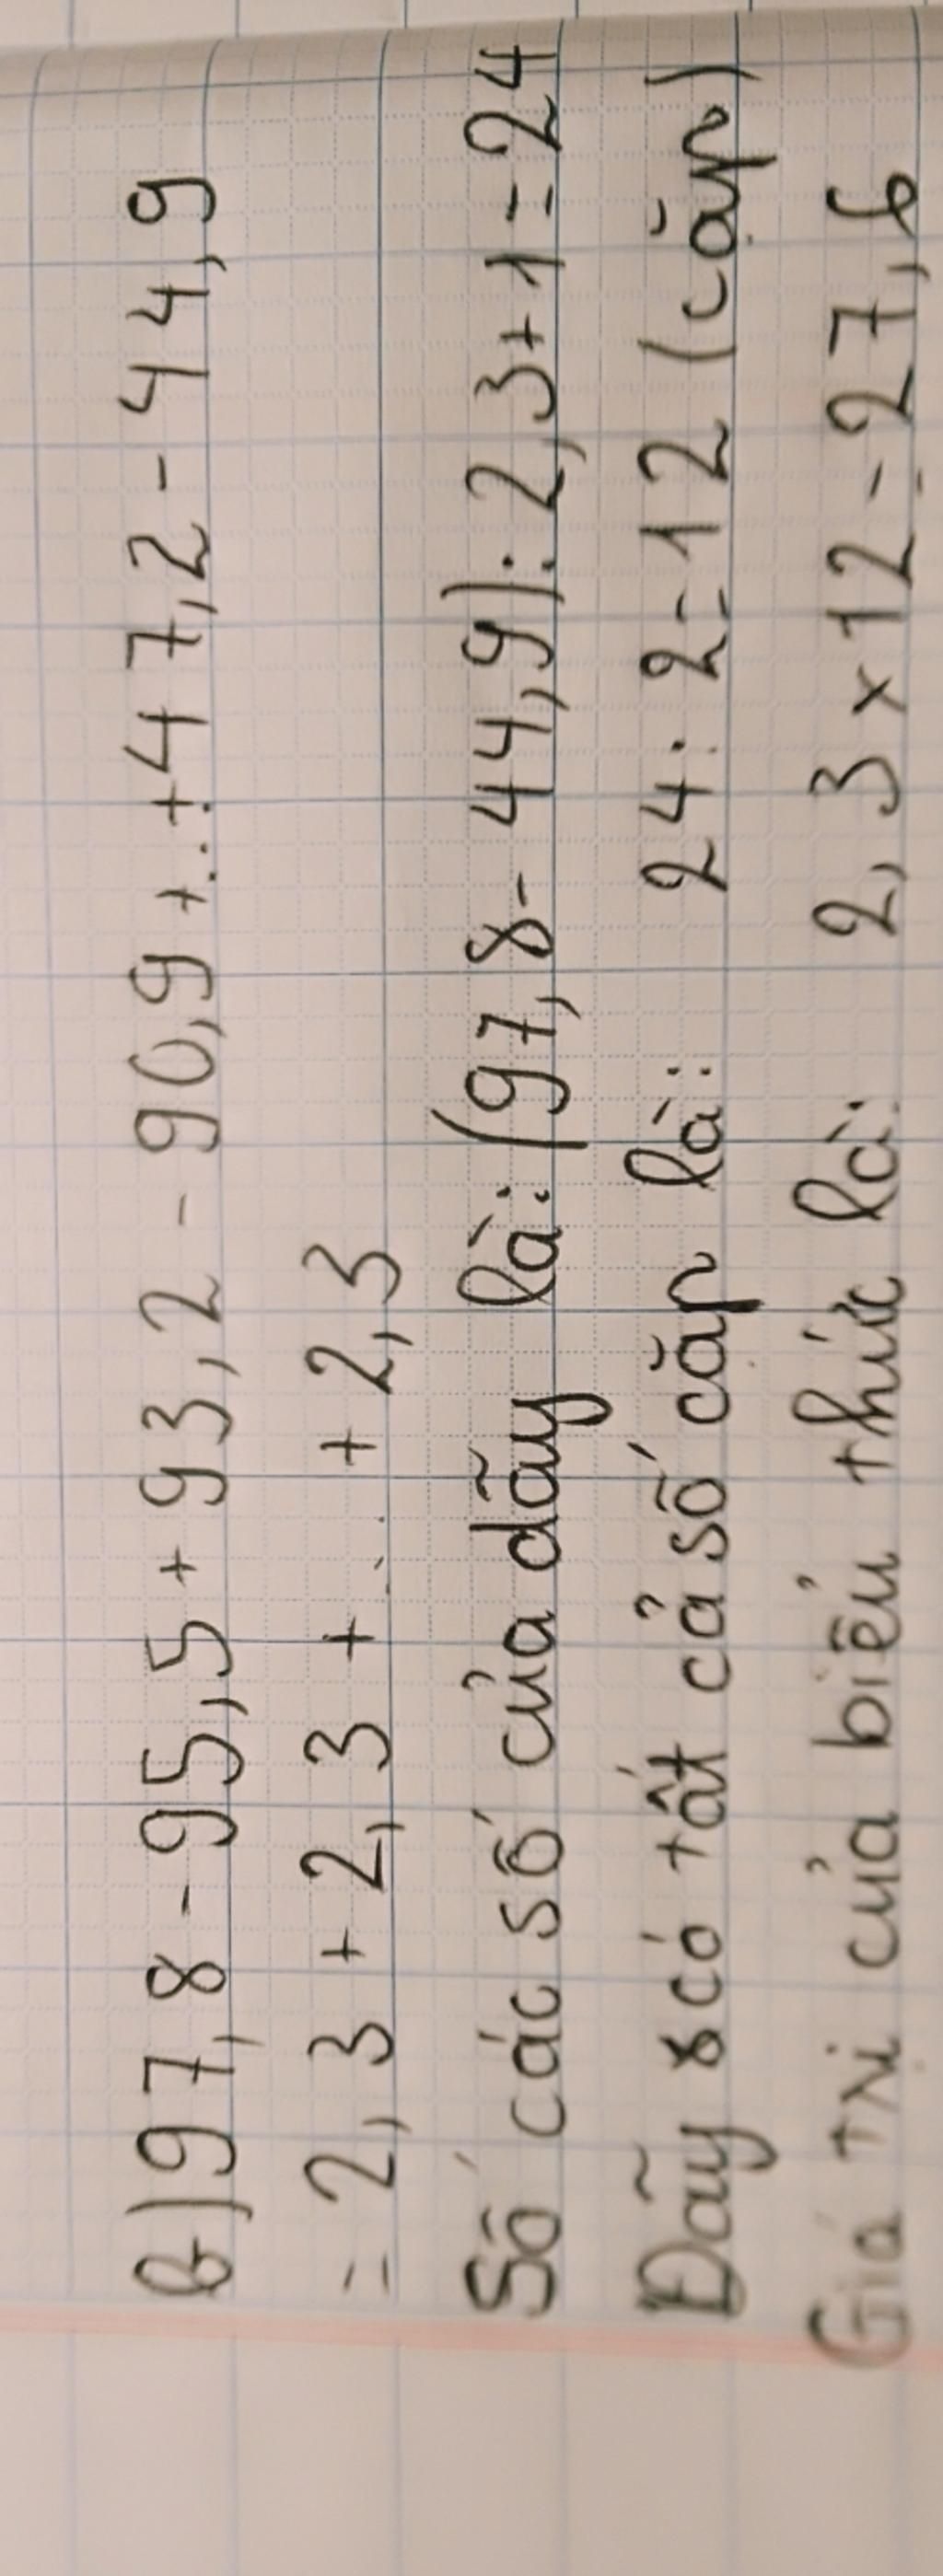 b) 97,8 - 95,5 + 93,2 - 90,9 + ... + 47,2 - 44,9
= 2,3 + 2,3 + ... + 2,3
Số các số của dãy là: (97,8 - 44,9) : 2,3 + 1 = 24
Dãy số có tất cả số cặp là: 24 : 2 = 12 (cặp)
Giá trị của biểu thức là: 2,3 x 12 = 27,6